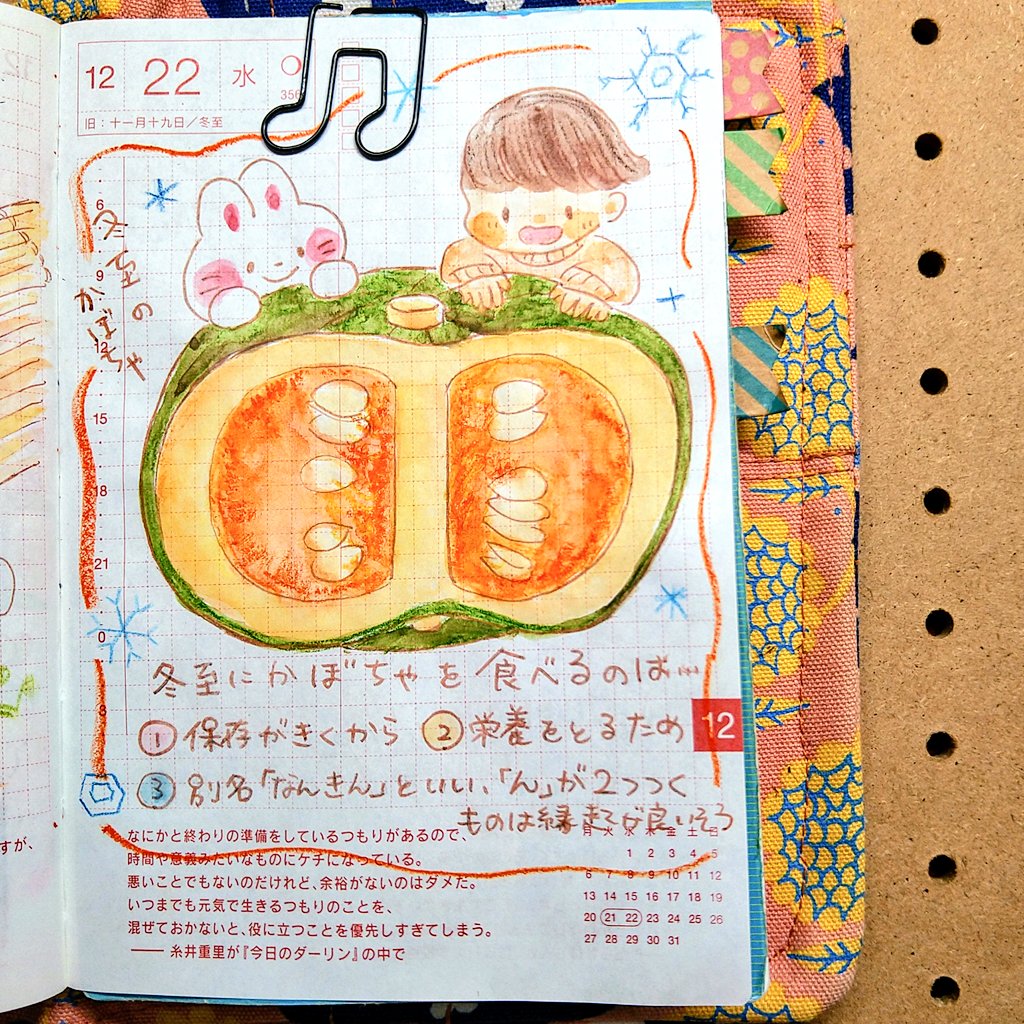 12 22 水
356
旧：十一月十九日／冬至
冬至の
かぼちゃ
6
9
12
15
18
21
0
3
冬至にかぼちゃを食べるのは…
① 保存がきくから ② 栄養をとるため
12
③ 別名「なんきん」といい、「ん」が2つつく
ものは縁起が良いそう
なにかと終わりの準備をしているつもりがあるので、
時間や意義みたいなものにケチになっている。
悪いことでもないのだけれど、余裕がないのはダメだ。
いつまでも元気で生きるつもりのことを、
混ぜておかないと、役に立つことを優先しすぎてしまう。
―― 糸井重里が『今日のダーリン』の中で
月 火 水 木 金 土 日
1 2 3 4 5
6 7 8 9 10 11 12
13 14 15 16 17 18 19
20 21 22 23 24 25 26
27 28 29 30 31
すが、